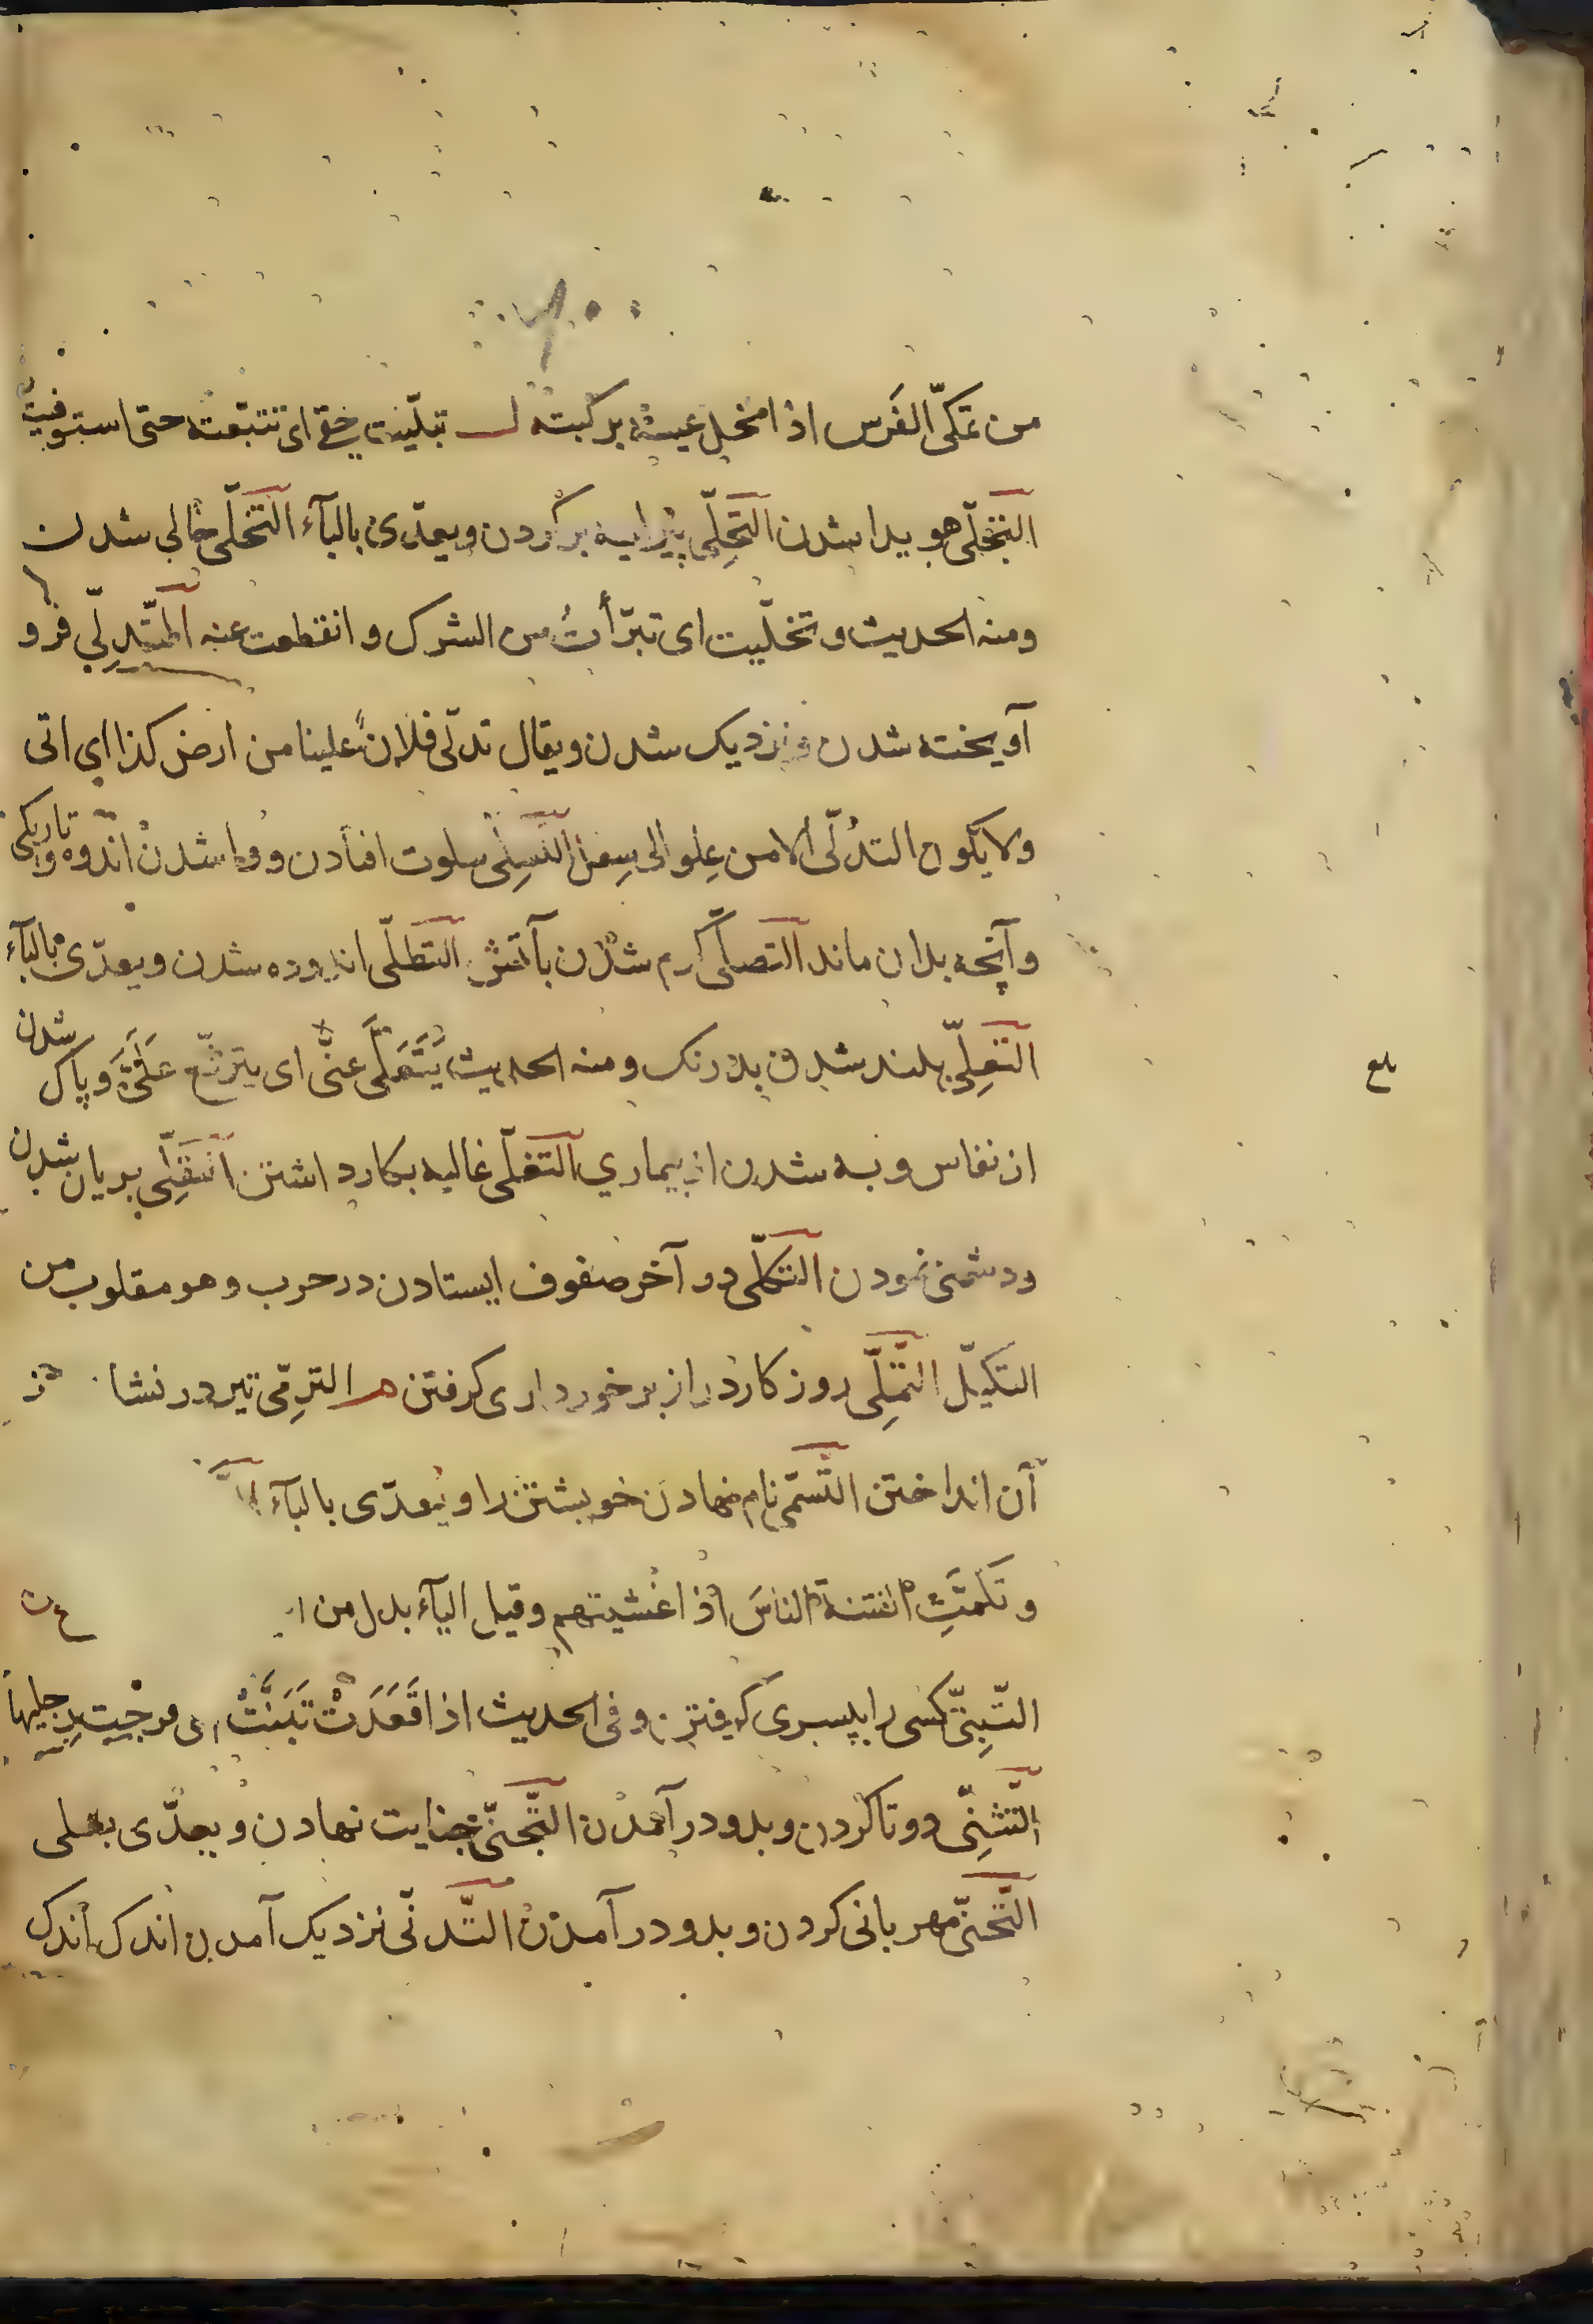 من تمكّى الفَرَس اذا انحل عيسه بركبته ل تبلّيت حقى اى تتبّعته حتى استوفيته
التجلّى هويدا شدن التَحلّى پيرايه بر كردن ويعدّى بالبآء التخلّى خالى شدن
ومنه الحديث وتخلّيت اى تبرّأتُ من الشرك وانقطعت عنه التدلّي فرو
آويخته شدن ونزديك شدن ويقال تدلّى فلانٌ علينا من ارض كذا اي اتى
ولا يكون التدلّى الا من عِلو الى سِفل التَسلّى سلوت افتادن ووا شدن اندوه وتاريكى
وآنچه بدان ماند التصلّى گرم شدن بآتش التطلّى اندوده شدن ويعدّى بالبآء
التعلّى بلند شدن بدرنك ومنه الحديث يَتَعَلَّى عنّى اى يترفّع عَلَىَّ وپاك شدن
از نفاس وبه شدن از بيماري التغلّى غاليه بكار داشتن التقلّى بريان شدن
ودشمنى نمودن التكلّى در آخر صفوف ايستادن در حرب وهو مقلوب من
التكيّل التَمَلّى روزكار دراز برخوردارى كرفتن م الترمّى تير در نشا
آن انداختن التسمّى نام نهادن خويشتن را ويعدّى بالبآء
وتكمّتِ الفتنة الناسَ اذا غشيتهم وقيل اليآء بدل من
التبنّى كسى را بپسرى كرفتن وفى الحديث اذا قَعَدَتْ تَبَنَّتْ اى فرجت رجليها
التثنّى دوتا كردن وبدو درآمدن التجنّى جنايت نهادن ويعدّى بعلى
التحنّى مهربانى كردن وبدو درآمدن التدنّى نزديك آمدن اندك اندك